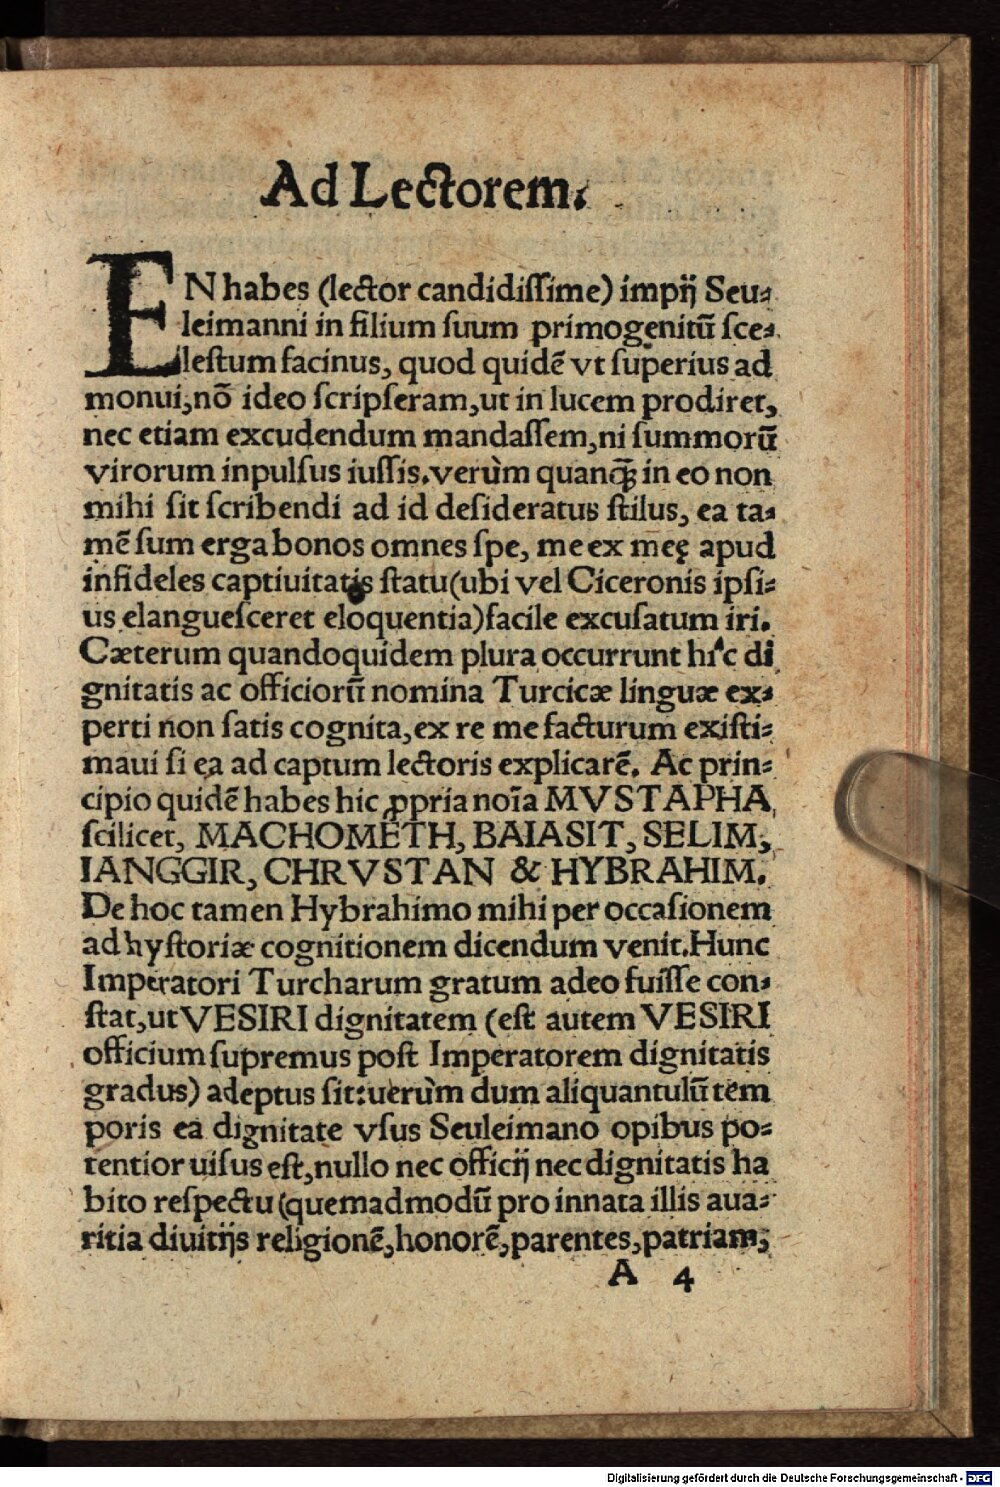 Ad Lectorem.
EN habes (lector candidissime) impij Seu-
leimanni in filium suum primogenitū sce-
lestum facinus, quod quidē vt superius ad
monui, nō ideo scripseram, ut in lucem prodiret,
nec etiam excudendum mandassem, ni summorū
virorum inpulsus iussis. verùm quanq̄ in eo non
mihi sit scribendi ad id desideratus stilus, ea ta-
mē sum erga bonos omnes spe, me ex meę apud
infideles captiuitatis statu (ubi vel Ciceronis ipsi-
us elanguesceret eloquentia) facile excusatum iri.
Cæterum quandoquidem plura occurrunt hîc di
gnitatis ac officiorū nomina Turcicæ linguæ ex-
perti non satis cognita, ex re me facturum existi-
maui si ea ad captum lectoris explicarē. Ac prin-
cipio quidē habes hic ꝓpria noīa MVSTAPHA
scilicet, MACHOMETH, BAIASIT, SELIM,
IANGGIR, CHRVSTAN & HYBRAHIM.
De hoc tamen Hybrahimo mihi per occasionem
ad hystoriæ cognitionem dicendum venit. Hunc
Imperatori Turcharum gratum adeo fuisse con-
stat, ut VESIRI dignitatem (est autem VESIRI
officium supremus post Imperatorem dignitatis
gradus) adeptus sit: uerùm dum aliquantulū tem
poris ea dignitate vsus Seuleimano opibus po-
tentior uisus est, nullo nec officij nec dignitatis ha
bito respectu (quemadmodū pro innata illis aua-
ritia diuitijs religionē, honorē, parentes, patriam,
A 4
Digitalisierung gefördert durch die Deutsche Forschungsgemeinschaft - DFG